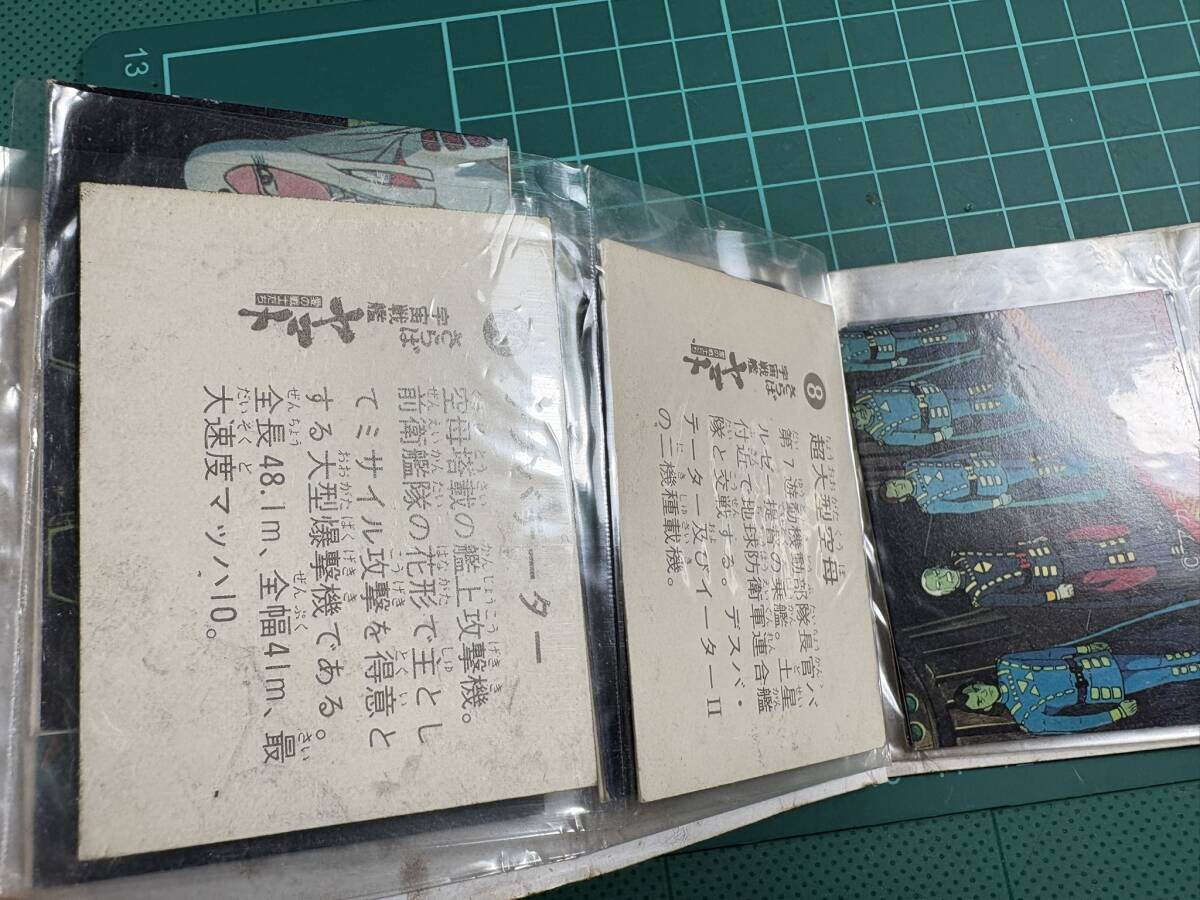 13
8
超大型空母
さらば
宇宙戦艦
ヤマト
愛の戦士たち
第7遊動機動部隊長官バ
ルゼー提督の乗艦。土星
付近で地球防衛軍連合艦
隊と交戦する。デスバ・
テーター及びイーターII
の二機種載機。
バテーター
さらば
宇宙戦艦
ヤマト
愛の戦士たち
空母搭載の艦上攻撃機。
前衛艦隊の花形で主とし
てミサイル攻撃を得意と
する大型爆撃機である。
全長48.1m、全幅41m、最
大速度マッハ10。